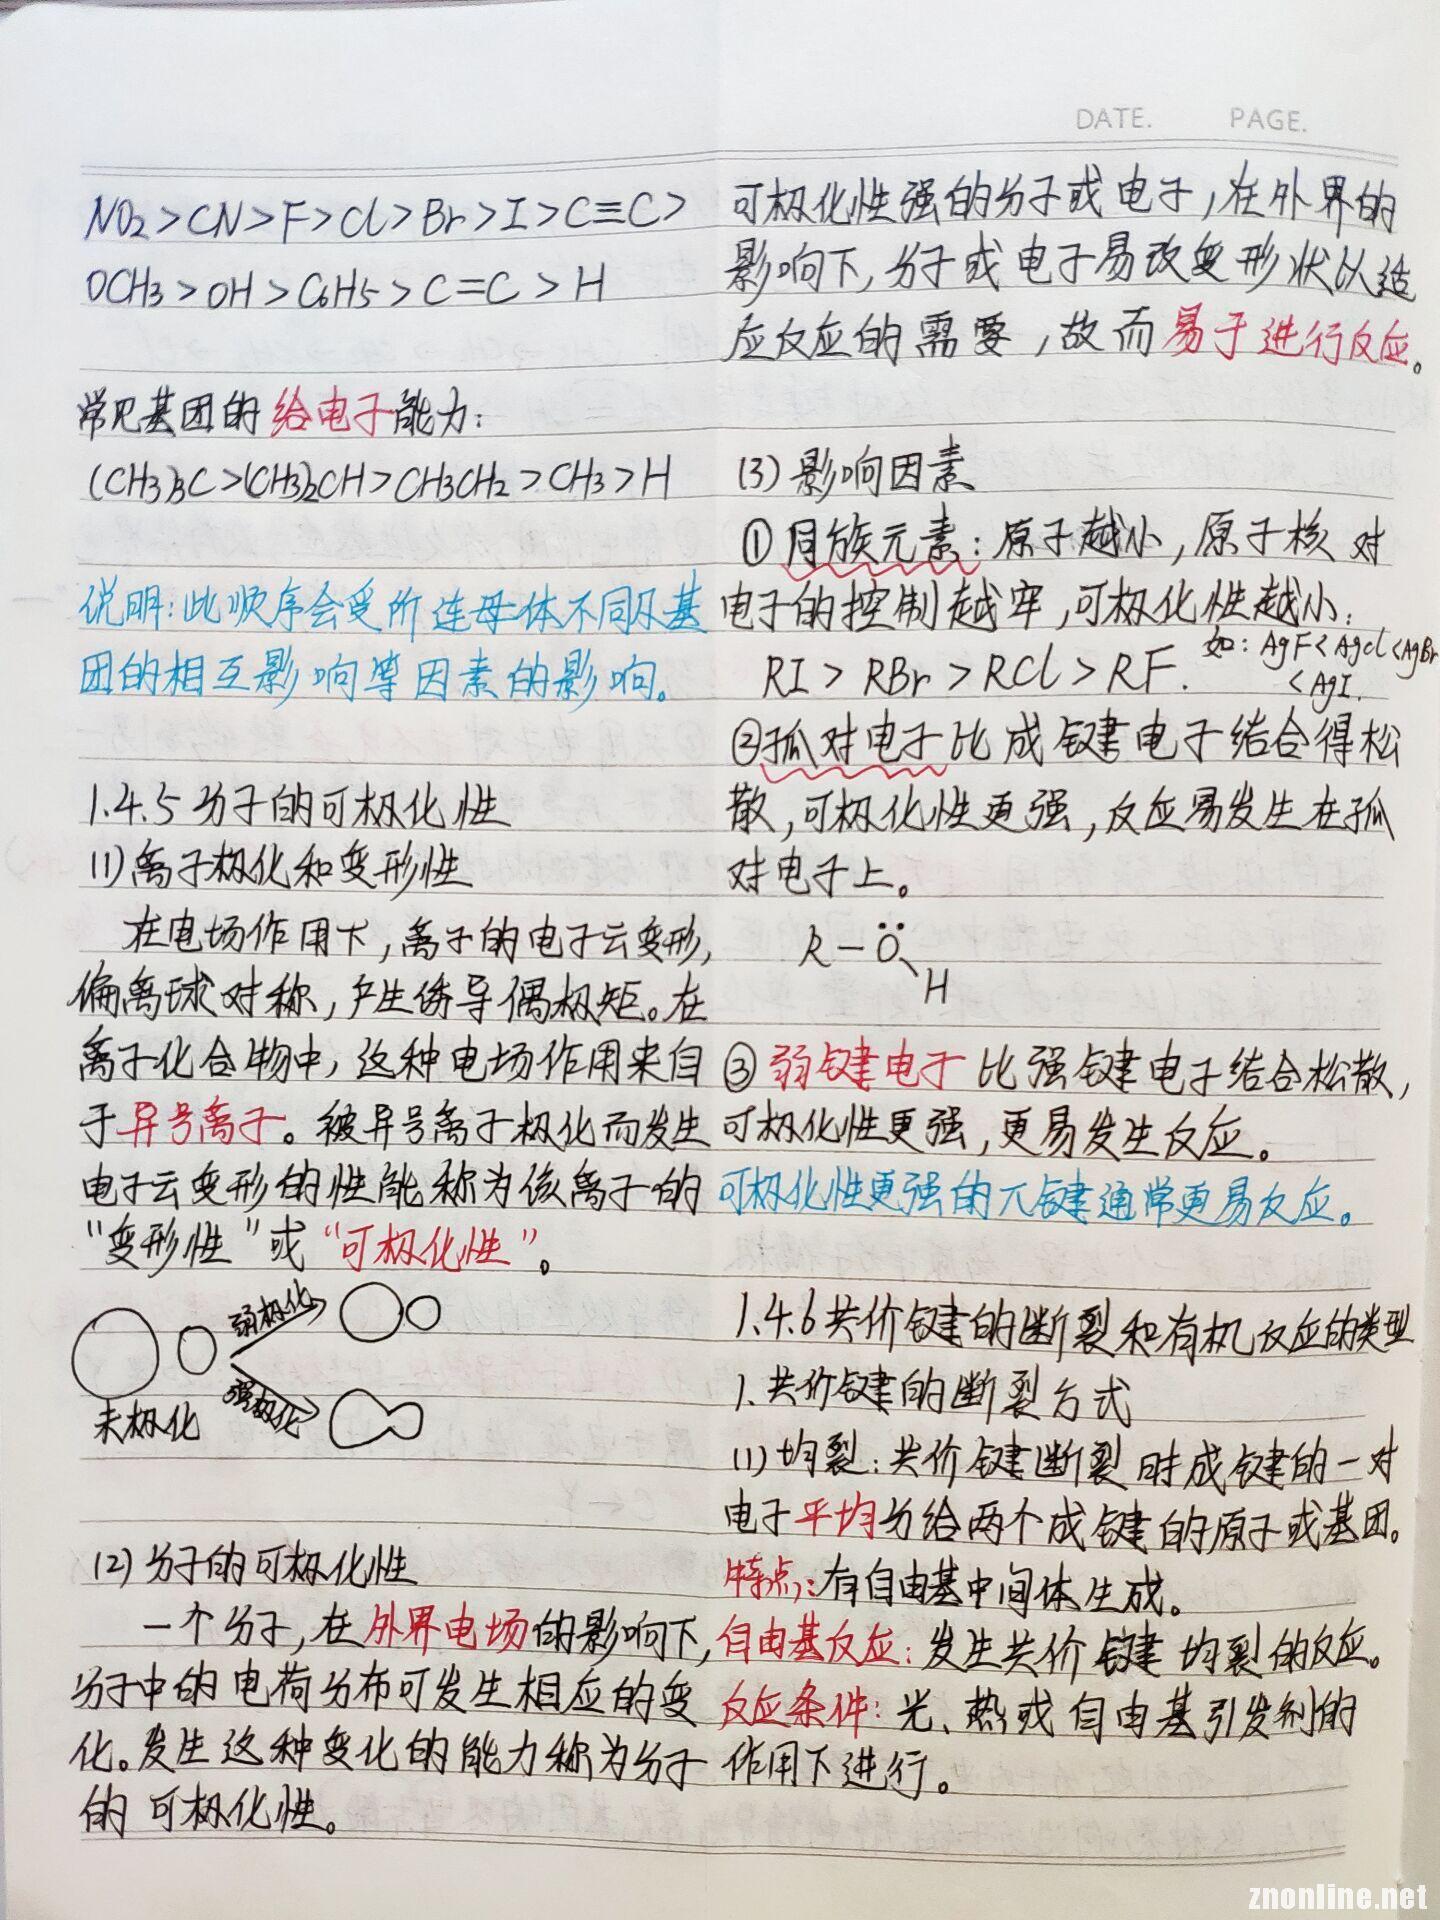 DATE. PAGE.
NO2>CN>F>Cl>Br>I>C≡C>
OCH3>OH>C6H5>C=C>H
常见基团的给电子能力:
(CH3)3C>(CH3)2CH>CH3CH2>CH3>H
说明:此顺序会受所连母体不同及基
团的相互影响等因素的影响。
1.4.5 分子的可极化性
(1)离子极化和变形性
在电场作用下,离子的电子云变形,
偏离球对称,产生诱导偶极矩。在
离子化合物中,这种电场作用来自
于异号离子。被异号离子极化而发生
电子云变形的性能称为该离子的
"变形性"或"可极化性"。
弱极化
强极化
未极化
(2)分子的可极化性
一个分子,在外界电场的影响下,
分子中的电荷分布可发生相应的变
化。发生这种变化的能力称为分子
的可极化性。
可极化性强的分子或电子,在外界的
影响下,分子或电子易改变形状以适
应反应的需要,故而易于进行反应。
(3)影响因素
①同族元素:原子越小,原子核对
电子的控制越牢,可极化性越小:
RI>RBr>RCl>RF.
如:AgF<AgCl<AgBr
<AgI.
②孤对电子比成键电子结合得松
散,可极化性更强,反应易发生在孤
对电子上。
R-O
H
③弱键电子比强键电子结合松散,
可极化性更强,更易发生反应。
可极化性更强的π键通常更易反应。
1.4.6共价键的断裂和有机反应的类型
1.共价键的断裂方式
(1)均裂:共价键断裂时成键的一对
电子平均分给两个成键的原子或基团。
特点:有自由基中间体生成。
自由基反应:发生共价键均裂的反应。
反应条件:光、热或自由基引发剂的
作用下进行。
znonline.net